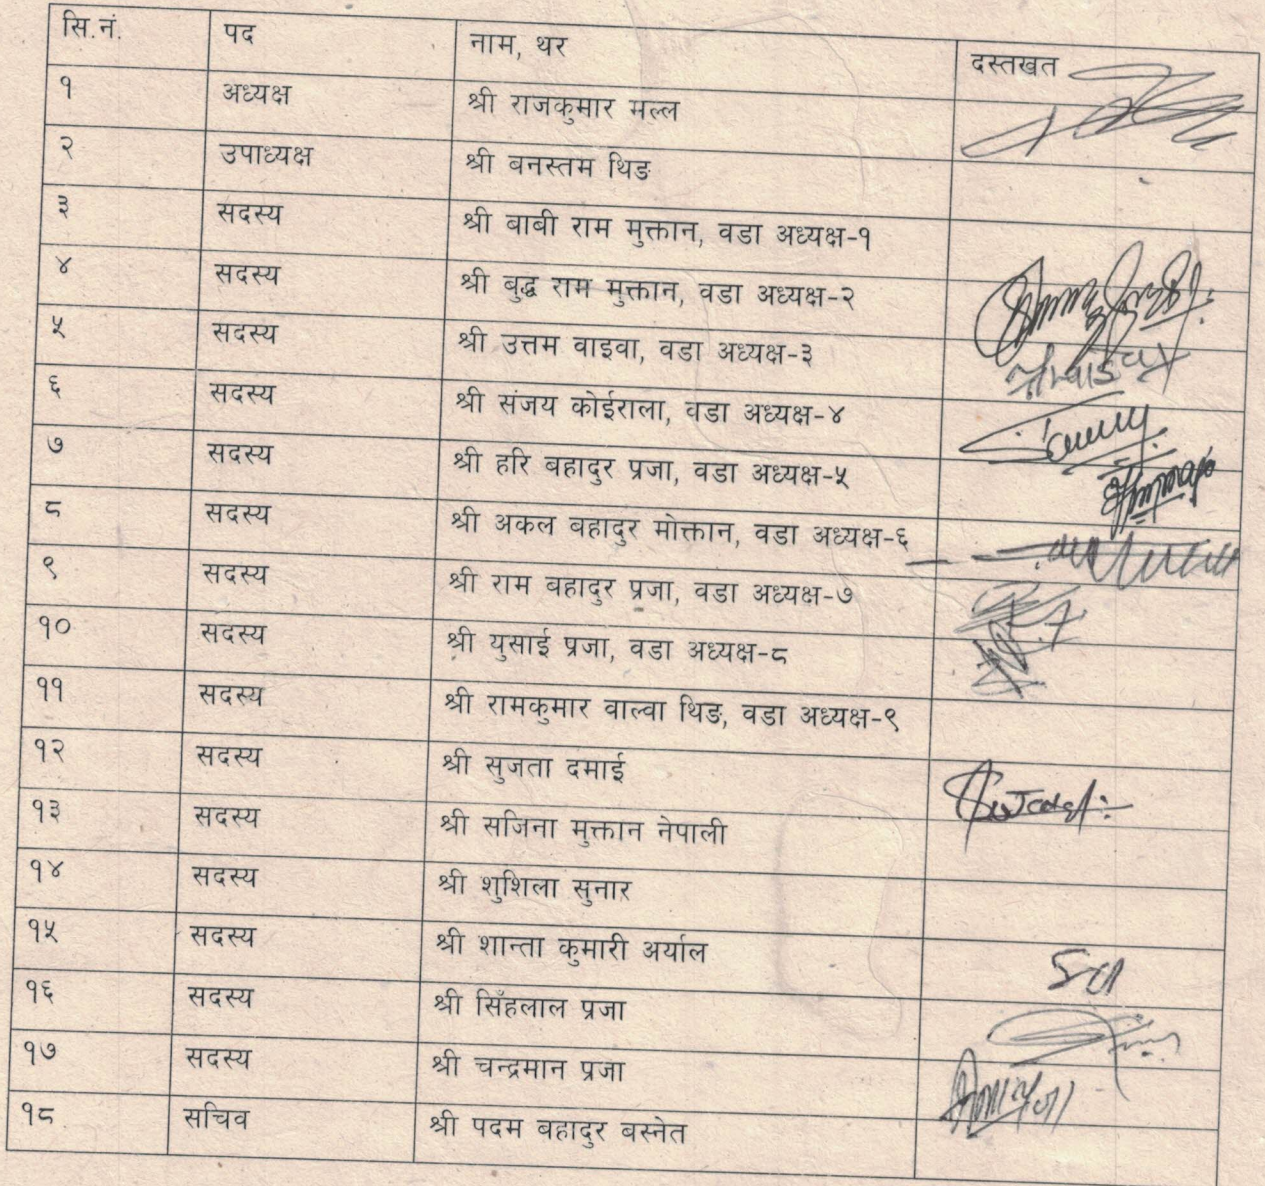 सि.नं. पद नाम, थर दस्तखत
१ अध्यक्ष श्री राजकुमार मल्ल
२ उपाध्यक्ष श्री बनस्तम थिङ
३ सदस्य श्री बाबी राम मुक्तान, वडा अध्यक्ष-१
४ सदस्य श्री बुद्ध राम मुक्तान, वडा अध्यक्ष-२
५ सदस्य श्री उत्तम वाइवा, वडा अध्यक्ष-३
६ सदस्य श्री संजय कोईराला, वडा अध्यक्ष-४
७ सदस्य श्री हरि बहादुर प्रजा, वडा अध्यक्ष-५
८ सदस्य श्री अकल बहादुर मोक्तान, वडा अध्यक्ष-६
९ सदस्य श्री राम बहादुर प्रजा, वडा अध्यक्ष-७
१० सदस्य श्री युसाई प्रजा, वडा अध्यक्ष-८
११ सदस्य श्री रामकुमार वाल्वा थिङ, वडा अध्यक्ष-९
१२ सदस्य श्री सुजता दमाई
१३ सदस्य श्री सजिना मुक्तान नेपाली
१४ सदस्य श्री शुशिला सुनार
१५ सदस्य श्री शान्ता कुमारी अर्याल
१६ सदस्य श्री सिँहलाल प्रजा
१७ सदस्य श्री चन्द्रमान प्रजा
१८ सचिव श्री पदम बहादुर बस्नेत